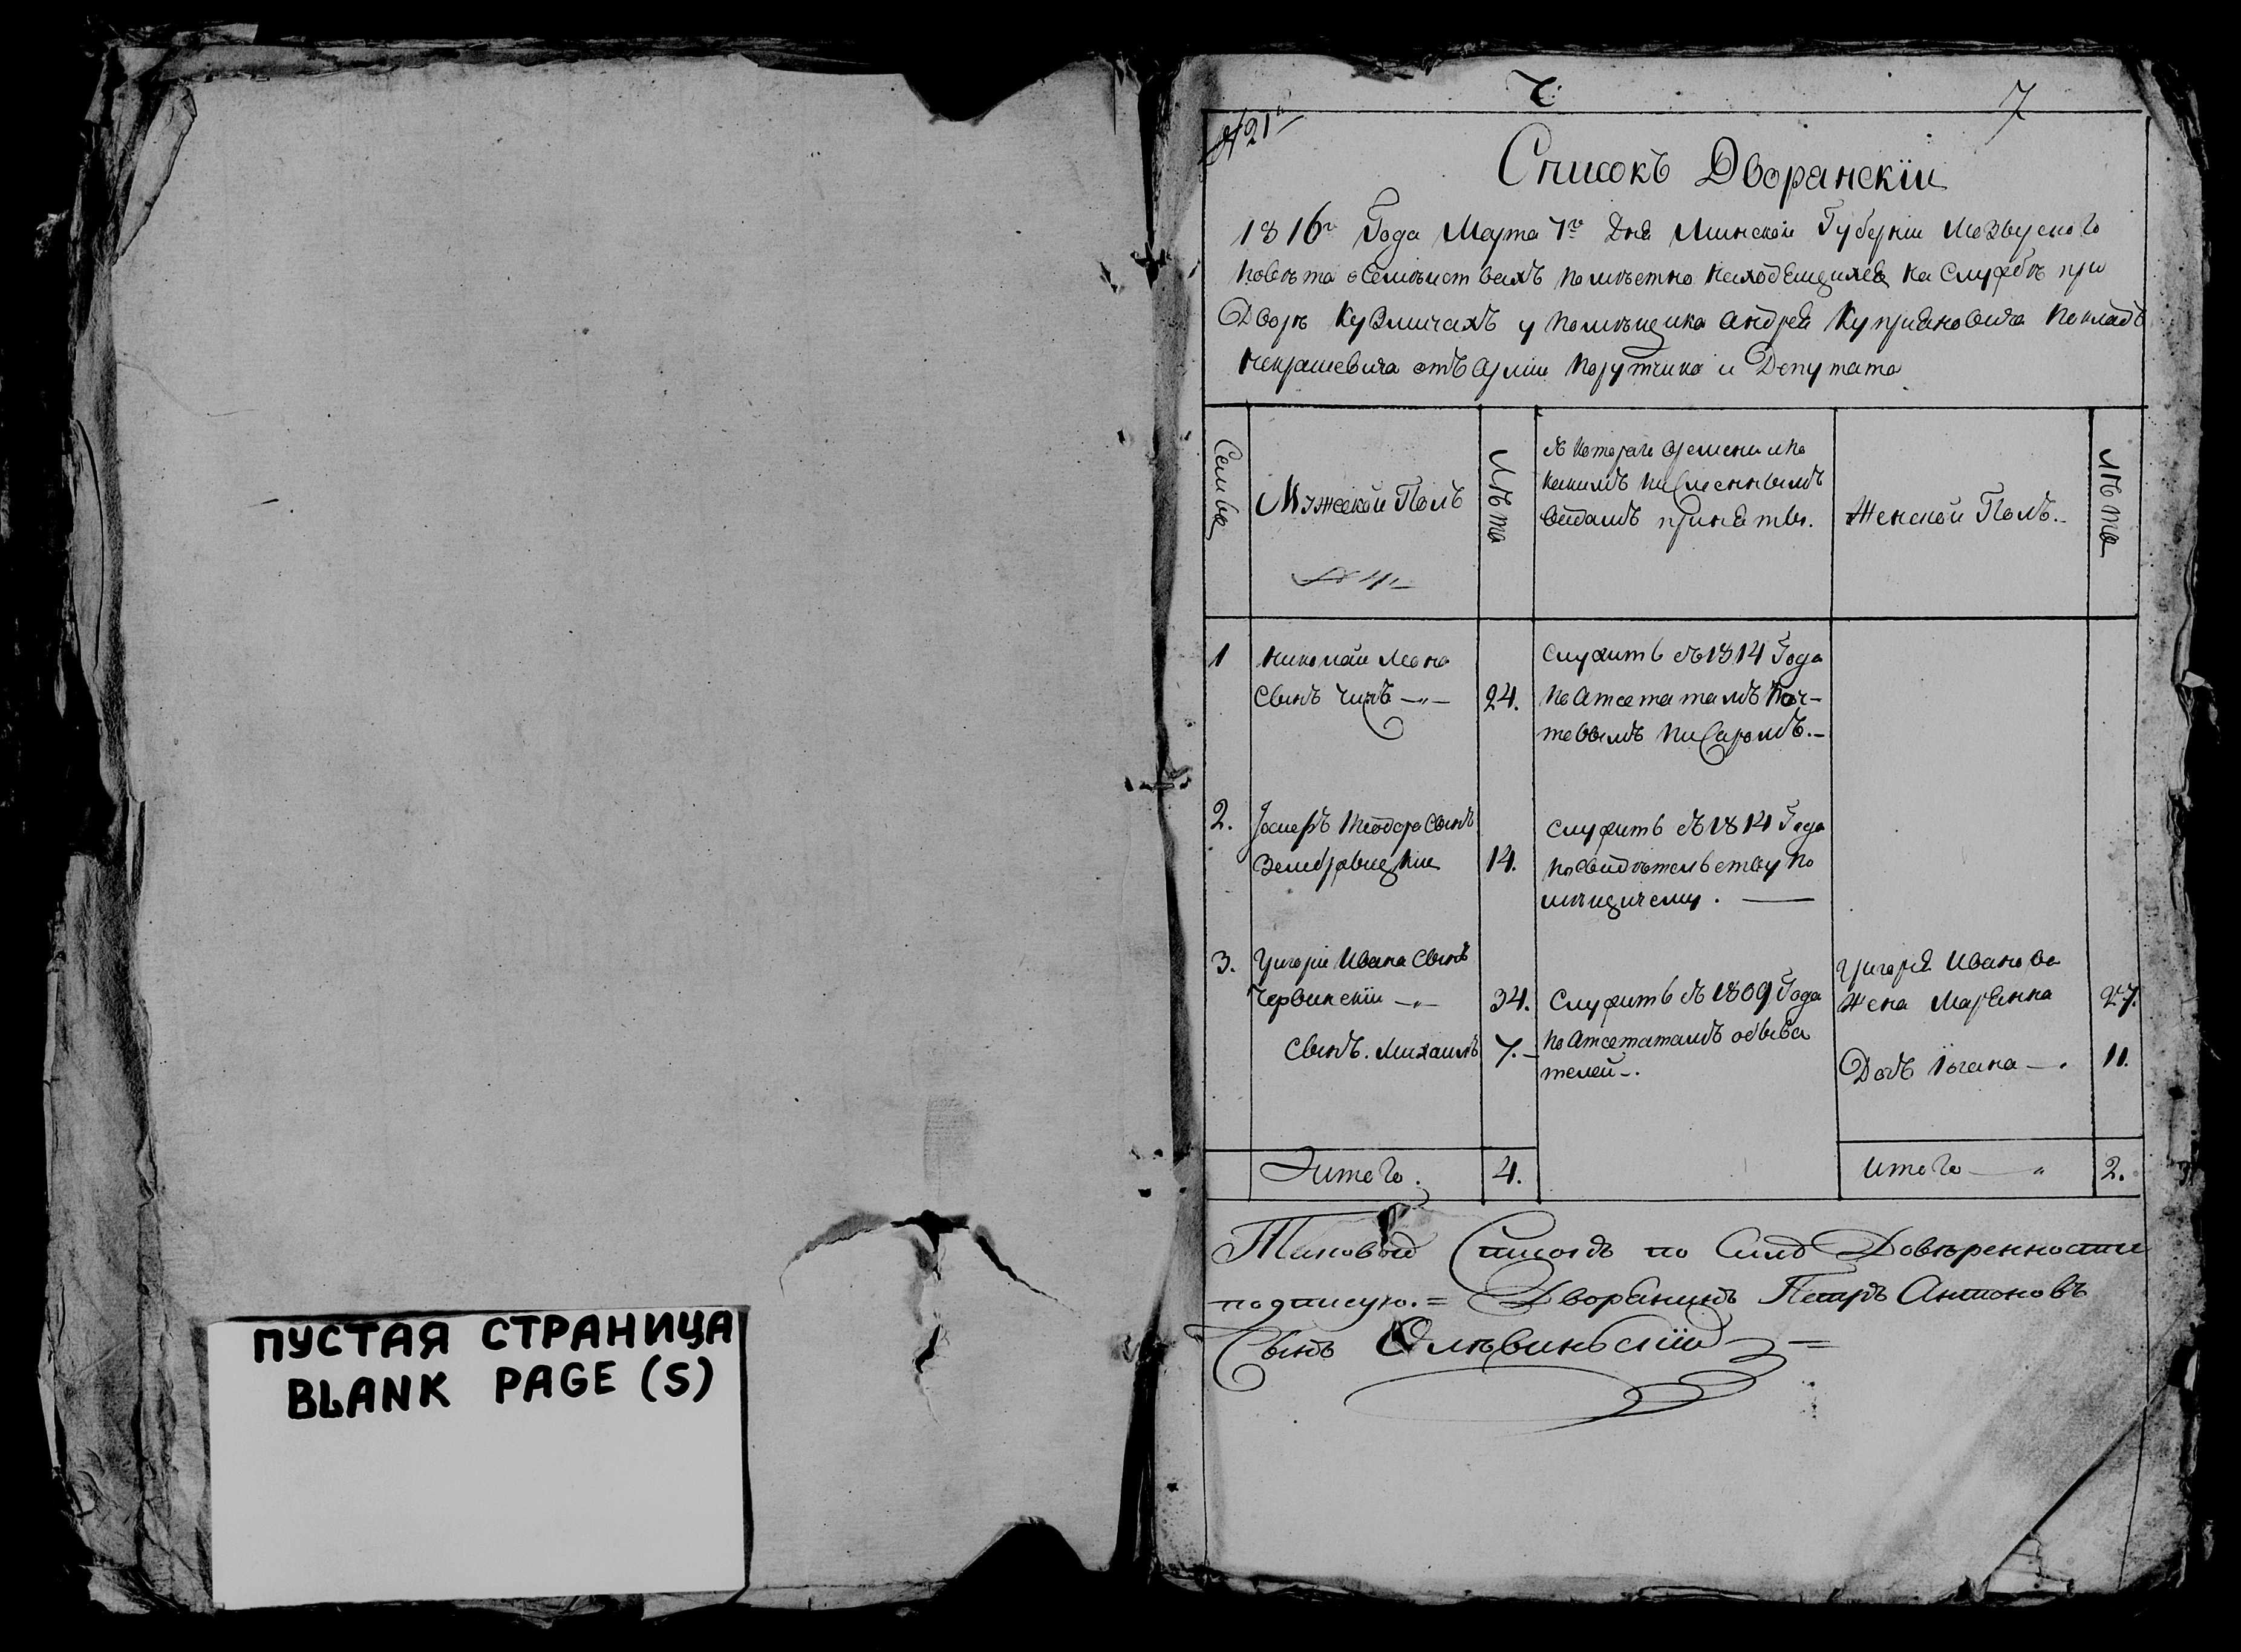 ПУСТАЯ СТРАНИЦА
BLANK PAGE (S)
7
№ 21
Списокъ Дворянскіи
1816го Года Марта 7го Дня Минской Губерніи Мозырского
повѣта о семѣиствахъ помѣстно находящихся на службѣ при
Дворѣ Кузмичахъ у помѣщика Андрея Куприяновича Покладъ
Некрашевича отъ армии Порутчика и Депутата
Семья
Мужескои Полъ
Лѣта
съ котораго времени и по
какимъ писменнымъ
видамъ приняты.
Женской Полъ.
Лѣта
1
Николаи
Сынъ Чижъ
24.
Служитъ съ 1814 Года
по атсетатамъ поч-
товымъ писаромъ.
2.
Іосифъ Теодора Сынъ
14.
Служитъ съ 1814 Года
по свидѣтельству по
мѣщичему.
3.
Григоріи Ивана Сынъ
Червинскіи
34.
Служитъ съ 1809 Года
по атсетатамъ обыва
телей.
Григория Иванова
Жена Марянна
27.
Сынъ. Михаилъ
7.
Дочь
11.
Итого.
4.
Итого
2.
Таковой Списокъ по Силѣ Довѣренности
подписую. = Дворянинъ Петръ Антоновъ
Сынъ